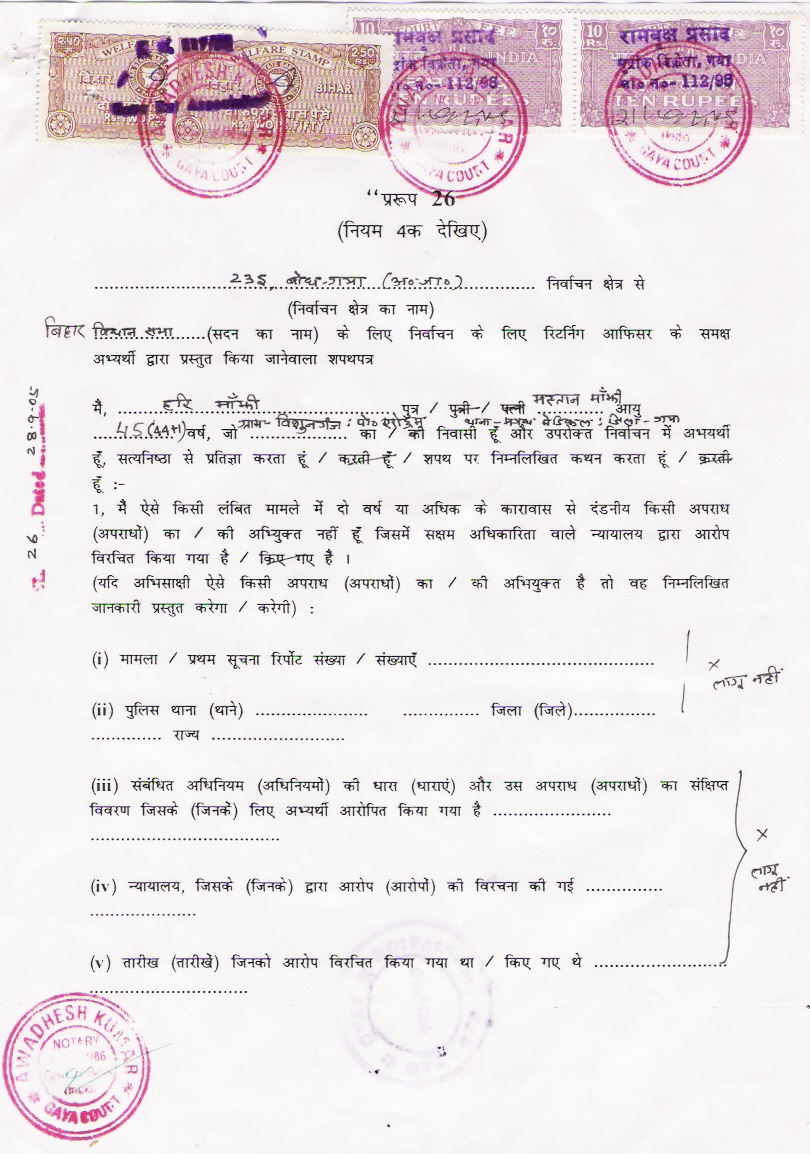 2.50 WELFARE STAMP
Rs.
बिहार
BIHAR
10 Rs. COURT FEE १० रु.
INDIA
TEN RUPEES
रामवृक्ष प्रसाद
गया
ला० न०- 112/98
AWADHESH KUMAR
GAYA COURT
"प्ररूप 26
(नियम 4क देखिए)
235, बोध-गया (अ०जा०) निर्वाचन क्षेत्र से
(निर्वाचन क्षेत्र का नाम)
बिहार विधान सभा (सदन का नाम) के लिए निर्वाचन के लिए रिटर्निंग आफिसर के समक्ष
अभ्यर्थी द्वारा प्रस्तुत किया जानेवाला शपथपत्र
मै, हरि माँझी पुत्र / पुत्री / पत्नी मस्तान माँझी आयु
45(44+1) वर्ष, जो ग्राम- विशुनगंज: पो० थाना- मगध मेडिकल: जिला- गया का / की निवासी हूँ और उपरोक्त निर्वाचन में अभयर्थी
हूँ, सत्यनिष्ठा से प्रतिज्ञा करता हूं / करती हूँ / शपथ पर निम्नलिखित कथन करता हूं / करती
हूँ :-
1, मै ऐसे किसी लंबित मामले में दो वर्ष या अधिक के कारावास से दंडनीय किसी अपराध
(अपराधों) का / की अभियुक्त नहीं हूँ जिसमें सक्षम अधिकारिता वाले न्यायालय द्वारा आरोप
विरचित किया गया है / किए गए है ।
(यदि अभिसाक्षी ऐसे किसी अपराध (अपराधों) का / की अभियुक्त है तो वह निम्नलिखित
जानकारी प्रस्तुत करेगा / करेगी) :
(i) मामला / प्रथम सूचना रिर्पोट संख्या / संख्याएँ ........................................
× लागू नहीं
(ii) पुलिस थाना (थाने) .................... .............. जिला (जिले)...............
............. राज्य ........................
(iii) संबंधित अधिनियम (अधिनियमों) की धारा (धाराएं) और उस अपराध (अपराधों) का संक्षिप्त
विवरण जिसके (जिनकें) लिए अभ्यर्थी आरोपित किया गया है .....................
..................................
× लागू नहीं
(iv) न्यायालय, जिसके (जिनके) द्वारा आरोप (आरोपों) की विरचना की गई ..............
...................
(v) तारीख (तारीखें) जिनको आरोप विरचित किया गया था / किए गए थे ........................
............................
26 Dated 28-9-05
AWADHESH KUMAR
NOTARY
GAYA COURT